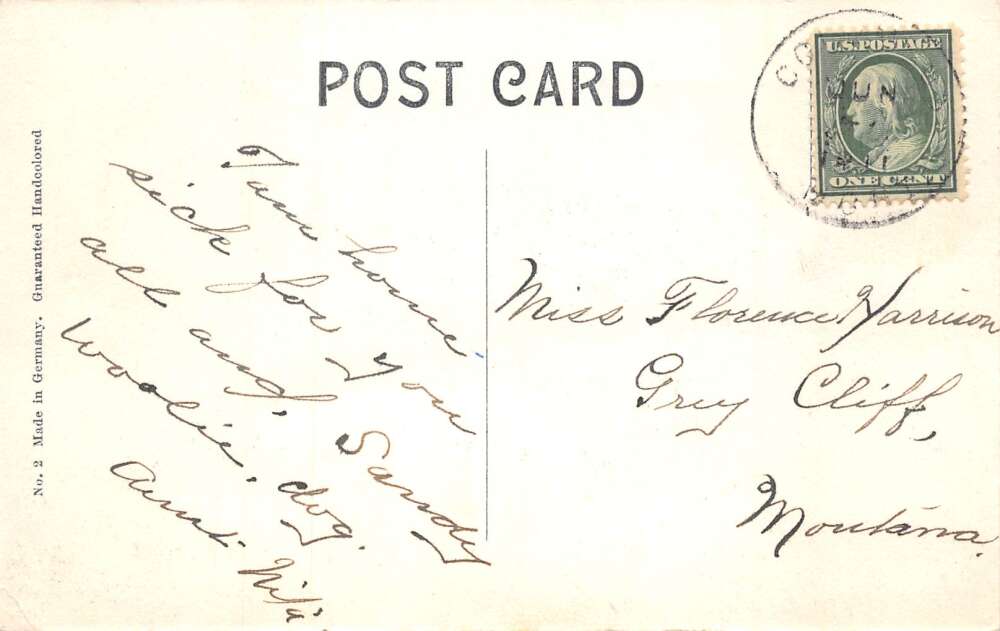 POST CARD
U.S. POSTAGE
ONE CENT
JUN
11
No. 2 Made in Germany. Guaranteed Handcolored
I am home
sick for you
all and Sandy
Woolie dog.
Aunt Nita
Miss Florence Harrison
Grey Cliff,
Montana.